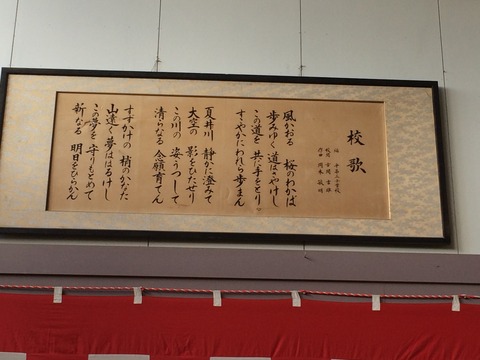 校歌
風かおる 桜のわかば
歩みゆく 道はさやけし
この道を 共に手をとり
すこやかにわれら歩まん
夏井川 静かに澄みて
大空の 影をひたせり
この川の 姿うつして
清らなる 念願育てん
すずかけの 梢のかなた
山遠く 夢ははるけし
この夢を 守りもとめて
新なる 明日をひらかん